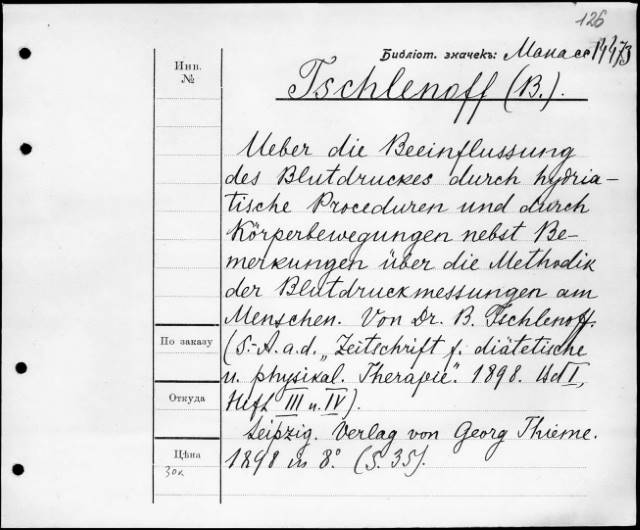 126
Библіот. значекъ: Манасс 14473
Инв.
№
Tschlenoff (B.).
Ueber die Beeinflussung
des Blutdruckes durch hydria-
tische Proceduren und durch
Körperbewegungen nebst Be-
merkungen über die Methodik
der Blutdruckmessungen am
Menschen. Von Dr. B. Tschlenoff.
(S.-A. a. d. „Zeitschrift f. diätetische
u. physikal. Therapie". 1898. Bd I,
Heft III u. IV).
Leipzig. Verlag von Georg Thieme.
1898 in 8°. (S. 35).
По заказу
Откуда
Цѣна
30к